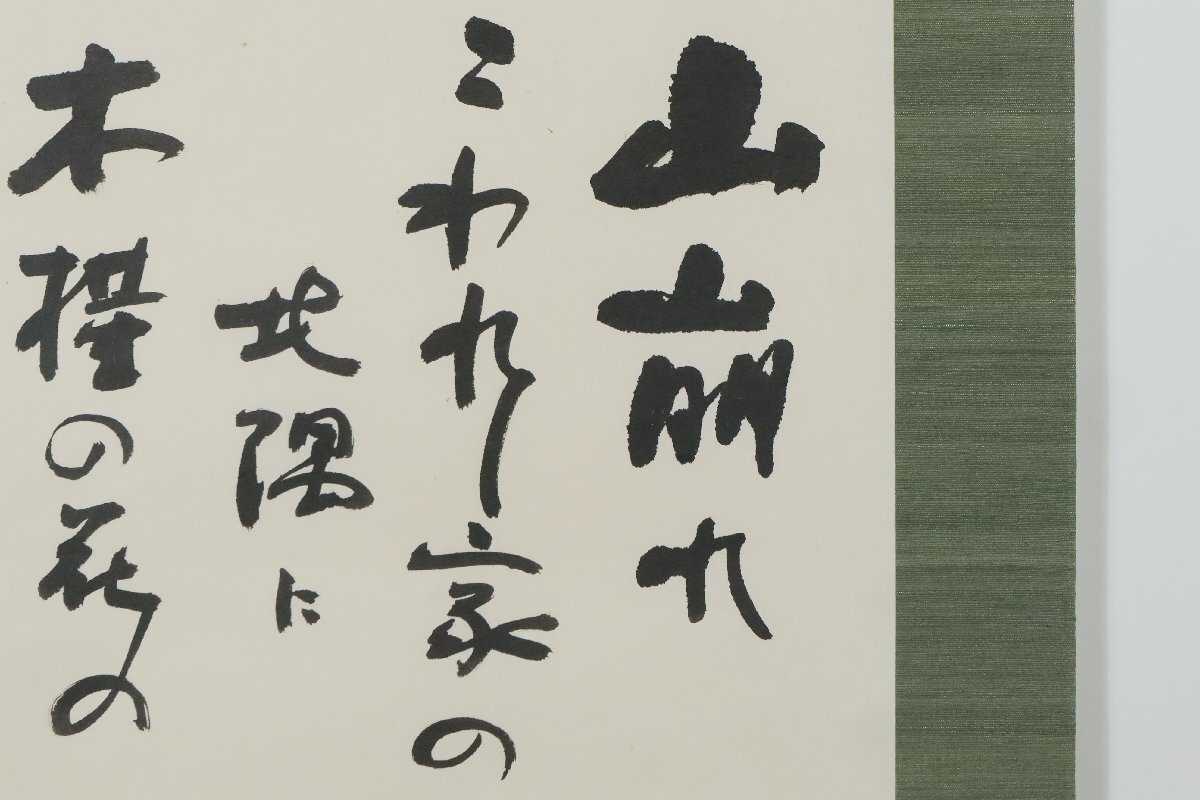 山崩れ
こわれ家の
此隅に
木槿の花の